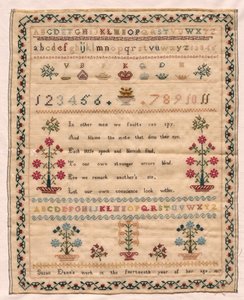 ABCDEFGHIJKLMNOPQRSTUVWXYZ
abcdefghijklmnopqrstuvwxyz
1 2 3 4 5 6 7 8 9 10 11
In other men we faults can spy,
And blame the mote that dims their eye,
Each little speck and blemish find,
To our own stronger errors blind.
Ere we remark another's sin,
Let our own conscience look within.
ABCDEFGHIJKLMNOPQRSTUVWXYZ
work in the fourteenth year of her age